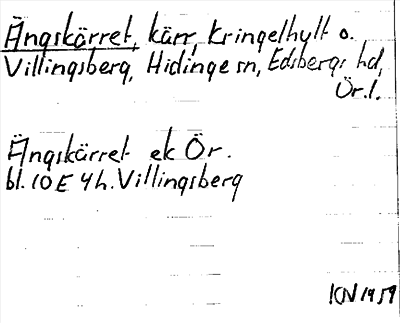 Ängskärret, kärr, Kringelhylt o.
Villingsberg, Hidinge sn, Edsbergs hd,
Ör.l.
Ängskärret ek Ör.
bl. 10 E 4 h. Villingsberg
KN 1959